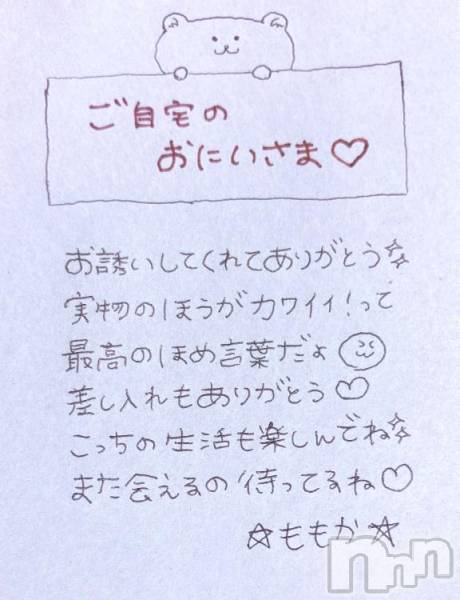 ご自宅の
おにいさま♡
お誘いしてくれてありがとう☆
実物のほうがカワイイ!って
最高のほめ言葉だよ
差し入れもありがとう♡
こっちの生活も楽しんでね☆
また会えるの待ってるね♡
☆ももか☆
nnn